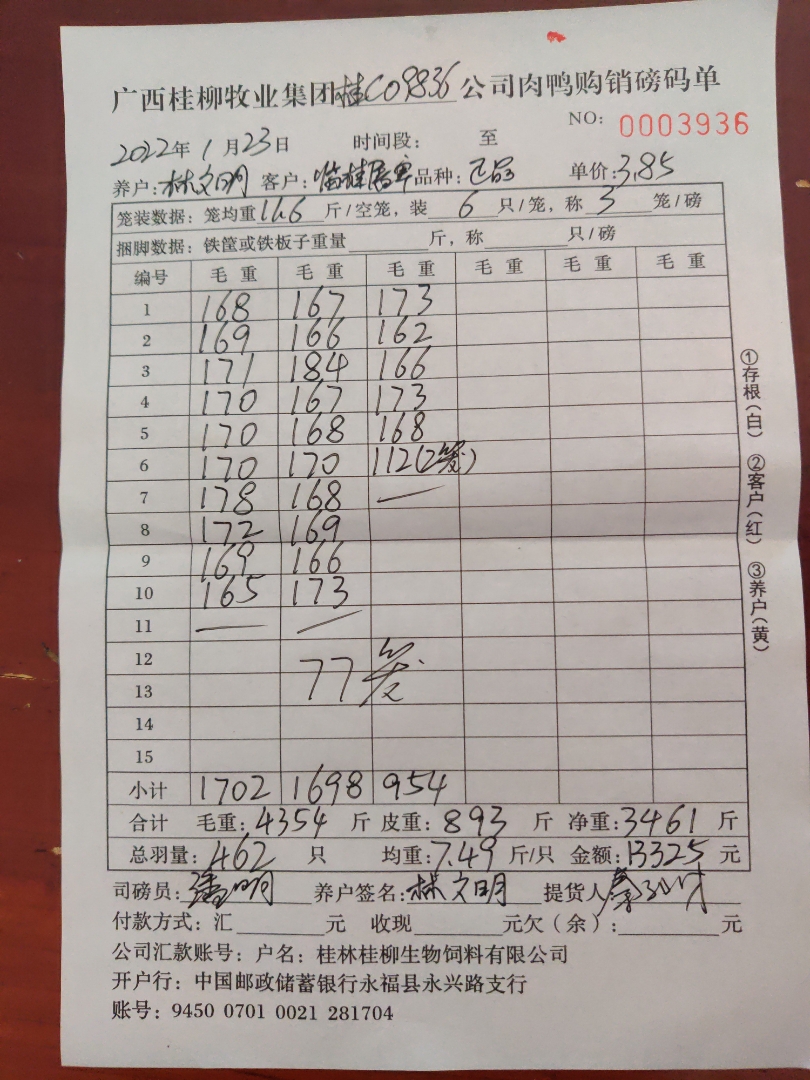 广西桂柳牧业集团桂C09836公司肉鸭购销磅码单
NO: 0003936
2022年1月23日 时间段: 至
养户:林文明 客户:临桂唐军 品种:正品 单价:3.85
笼装数据:笼均重11.6斤/空笼,装6只/笼,称3笼/磅
捆脚数据:铁筐或铁板子重量 斤,称 只/磅
编号 毛重 毛重 毛重 毛重 毛重 毛重
1 168 167 173
2 169 166 162
3 171 184 166
4 170 167 173
5 170 168 168
6 170 170 112(2笼)
7 178 168 —
8 172 169
9 169 166
10 165 173
11 — —
12
77笼
13
14
15
小计 1702 1698 954
合计 毛重:4354斤 皮重:893斤 净重:3461斤
总羽量:462只 均重:7.49斤/只 金额:13325元
司磅员:潘明 养户签名:林文明 提货人
付款方式:汇 元 收现 元欠(余): 元
公司汇款账号:户名:桂林桂柳生物饲料有限公司
开户行:中国邮政储蓄银行永福县永兴路支行
账号:9450 0701 0021 281704
①存根(白) ②客户(红) ③养户(黄)